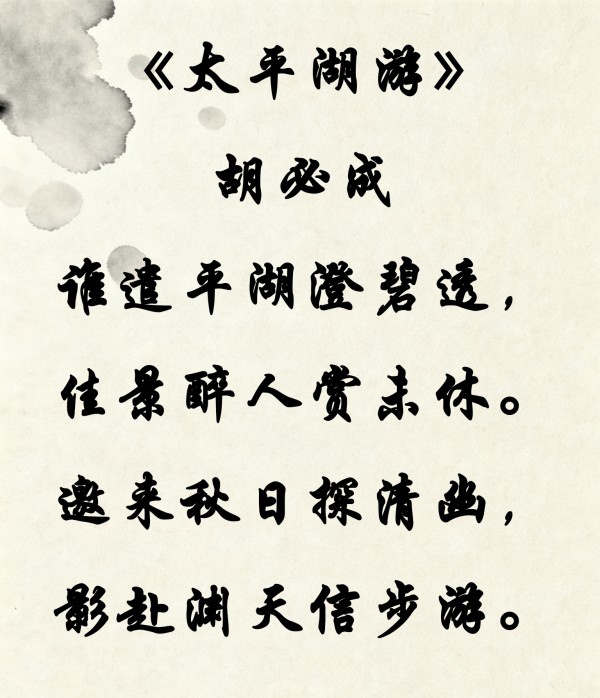 《太平湖游》
胡必成
谁遣平湖澄碧透，
佳景醉人赏未休。
邀来秋日探清幽，
影赴渊天信步游。